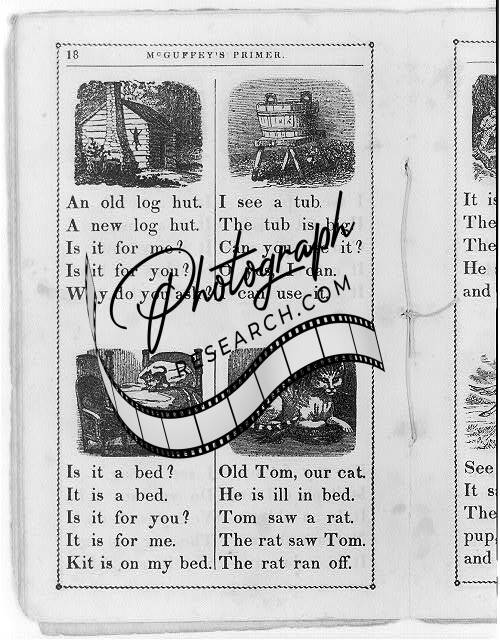 18 McGUFFEY'S PRIMER.
An old log hut.
A new log hut.
Is it for me?
Is it for you?
Why do you ask?
I see a tub.
The tub is big.
Can you see it?
I can.
I can use it.
Photograph
RESEARCH.COM
Is it a bed?
It is a bed.
Is it for you?
It is for me.
Kit is on my bed.
Old Tom, our cat.
He is ill in bed.
Tom saw a rat.
The rat saw Tom.
The rat ran off.
It is
The
The
He
and
See
It
The
pup,
and